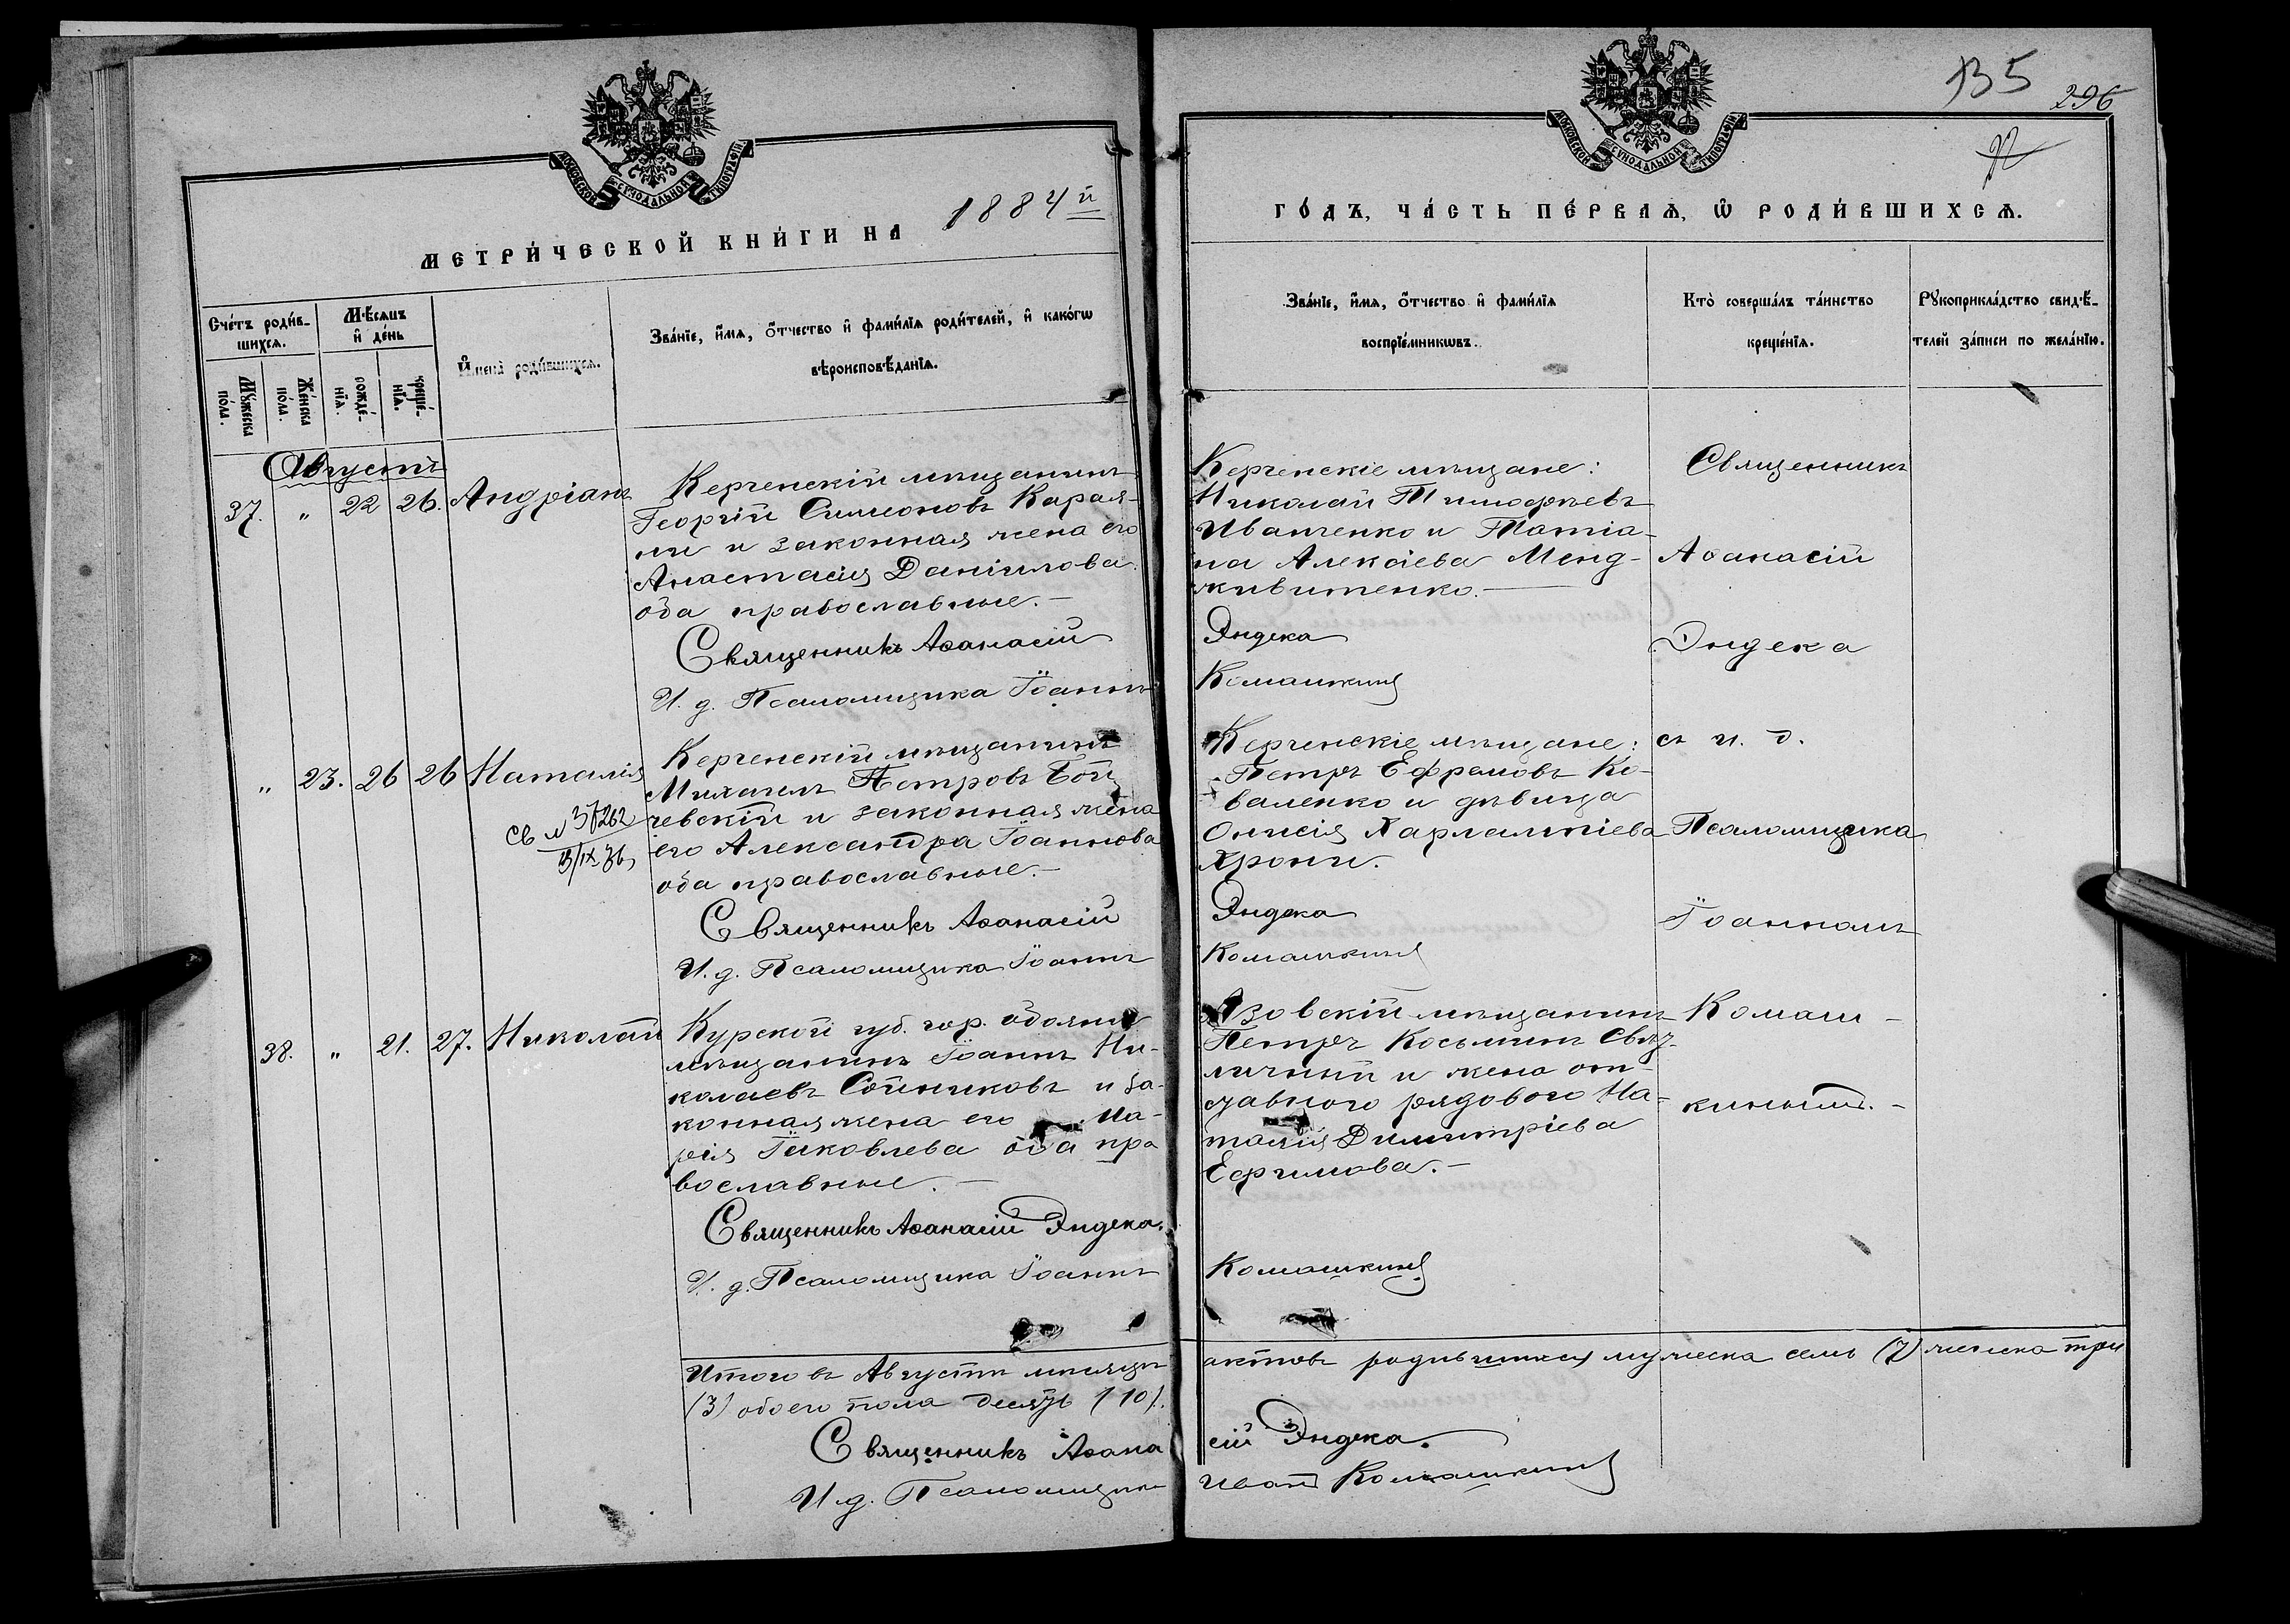 135
296
МОСКОВСКОЙ СѴНОДАЛЬНОЙ ТИПОГРАФІИ
МОСКОВСКОЙ СѴНОДАЛЬНОЙ ТИПОГРАФІИ
МЕТРИ́ЧЕСКОЙ КНИ́ГИ НА 1884й
ГО́ДЪ, ЧА́СТЬ ПЕ́РВАѦ, Ѡ҆ РОДИ́ВШИХСѦ.
Сче́тъ роди́в-
шихсѧ.
Мꙋ́жеска
по́ла.
Же́нска
по́ла.
М́ѣсѧцъ
и҆ де́нь
рожде́-
нїѧ.
креще́-
нїѧ.
И҆мена̀ роди́вшихсѧ.
Зва́нїе, и҆́мѧ, ѻ҆́тчество и҆ фамѝлїѧ роди́телей, и҆ како́гѡ
вѣроисповѣ́данїѧ.
Зва́нїе, и҆́мѧ, ѻ҆́тчество и҆ фами́лїѧ
воспрїе́мникѡвъ.
Кто̀ соверша́лъ та́инство
креще́нїѧ.
Рꙋкоприкла́дство свидѣ́-
телей за́писи по жела́нїю.
Августъ
37. " 22 26. Андріанъ
Керченскій мѣщанинъ
Георгій Симеоновъ Карая-
ни и законная жена его
Анастасія Даніилова
оба православные.-
Священникъ Аѳанасій
И. д. Псаломщика Іоаннъ
Керченскіе мѣщане:
Николай Тимофѣевъ
Иванченко и Татіа-
на Алексіева Менд-
живитенко.
Эндека
Комашкинъ
Священникъ
Аѳанасій
Эндека
" 23. 26 26 Наталія
св № 37262
Керченскій мѣщанинъ
Михаилъ Петровъ Бой-
чевскій и законная жена
его Александра Іоаннова
оба православные.-
Священникъ Аѳанасій
И. д. Псаломщика Іоаннъ
Керченскіе мѣщане:
Петръ Ефремовъ Ко-
валенко и дѣвица
Онисія Харлампіева
Хрони.
Эндека
Комашкинъ
съ и. д.
Псаломщика
Іоанномъ
38. " 21. 27. Николай
Курской губ. гор. Обояни
мѣщанинъ Іоаннъ Ни-
колаевъ Сойниковъ и за-
конная жена его Ма-
рія Іяковлева оба пра
вославные.-
Священникъ Аѳанасій Эндека.
И. д. Псаломщика Іоаннъ
Азовскій мѣщанинъ
Петръ Косьминъ
и жена от-
ставного рядового На-
талія Димитріева
Ефимова.-
Комашкинъ
Комаш-
кинымъ.-
Итого въ Августѣ мѣсяцѣ актовъ родившихся мужеска семь (7) женска три
(3) обоего пола десять (10).
Священникъ Аѳанасій Эндека.
И. д. Псаломщика Иванъ Комашкинъ